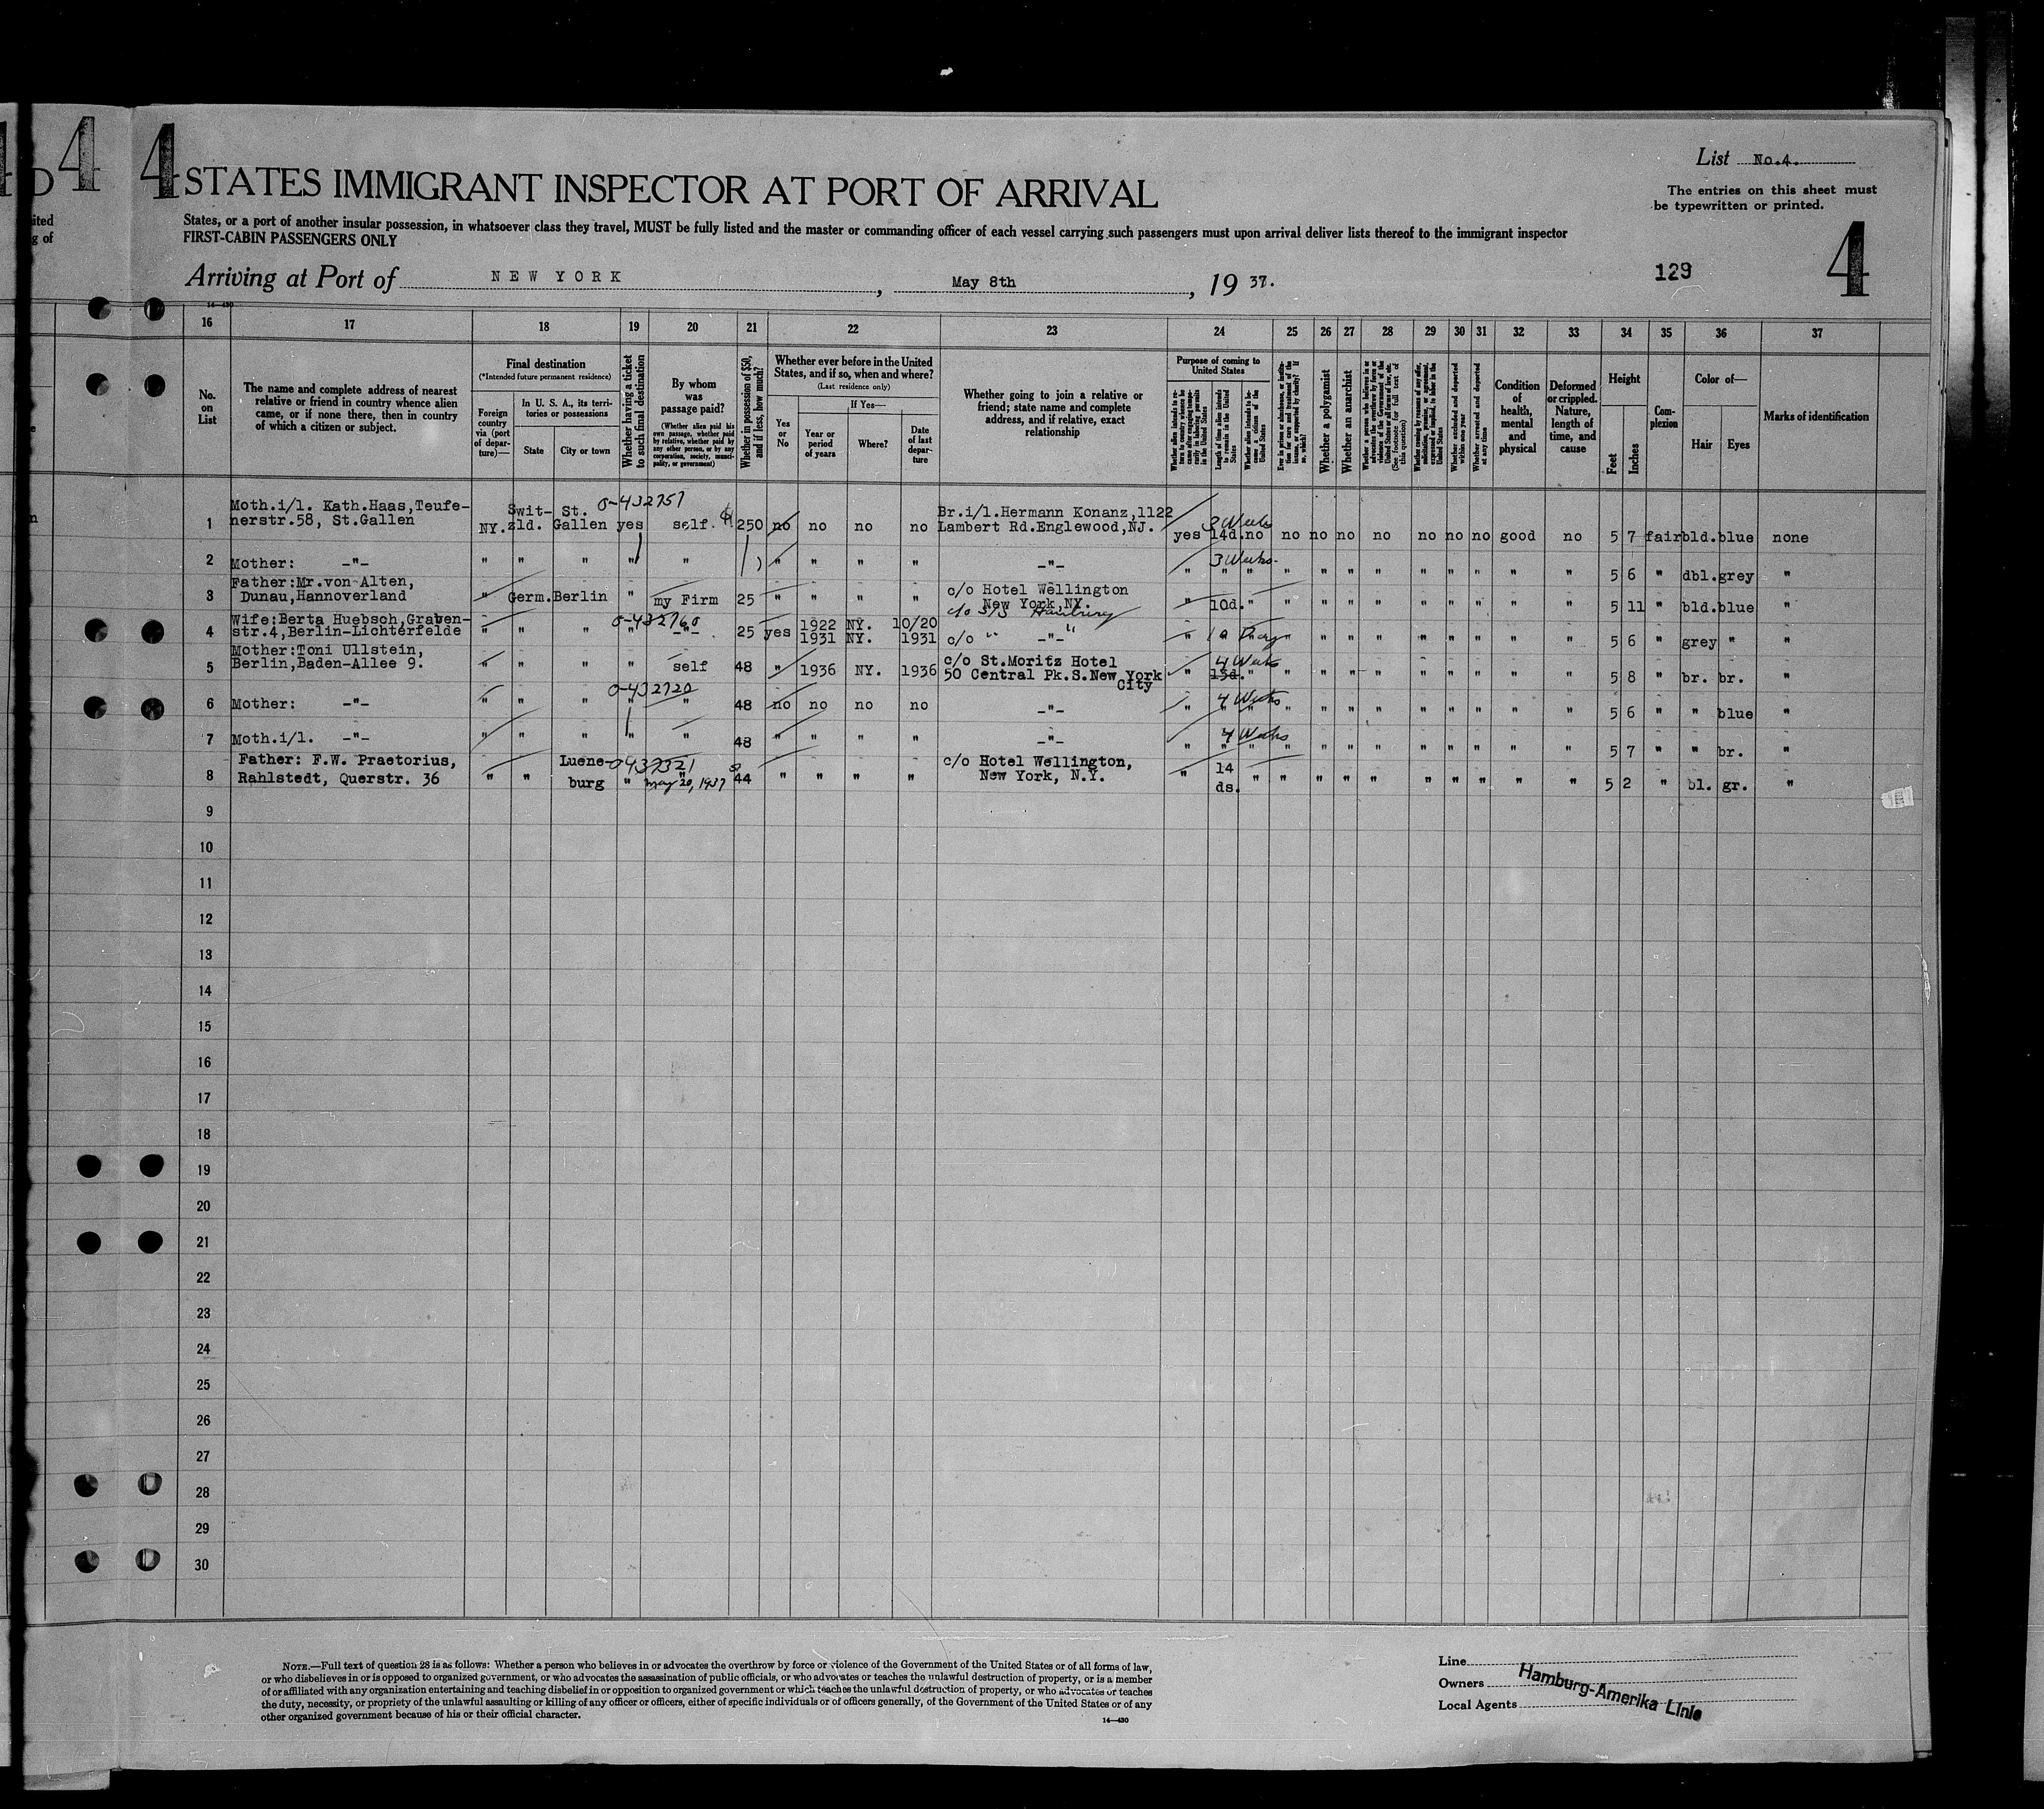 4
4
List No.4.
STATES IMMIGRANT INSPECTOR AT PORT OF ARRIVAL
The entries on this sheet must
be typewritten or printed.
States, or a port of another insular possession, in whatsoever class they travel, MUST be fully listed and the master or commanding officer of each vessel carrying such passengers must upon arrival deliver lists thereof to the immigrant inspector
FIRST-CABIN PASSENGERS ONLY
4
Arriving at Port of NEW YORK, May 8th, 19 37.
129
14-430
16 17 18 19 20 21 22 23 24 25 26 27 28 29 30 31 32 33 34 35 36 37
No. on List
The name and complete address of nearest
relative or friend in country whence alien
came, or if none there, then in country
of which a citizen or subject.
Final destination
(*Intended future permanent residence)
Foreign country via (port of departure)—
In U. S. A., its territories or possessions
State
City or town
Whether having a ticket to such final destination
By whom was passage paid?
(Whether alien paid his own passage, whether paid by relative, whether paid by any other person, or by any corporation, society, municipality, or government)
Whether in possession of $50, and if less, how much?
Whether ever before in the United States, and if so, when and where?
(Last residence only)
Yes or No
If Yes—
Year or period of years
Where?
Date of last departure
Whether going to join a relative or
friend; state name and complete
address, and if relative, exact
relationship
Purpose of coming to United States
Length of time alien intends to remain in the United States
Whether alien intends to become a citizen of the United States
Whether a polygamist
Whether an anarchist
(See footnote for full text of this question)
Whether arrested and deported at any time
Condition of health, mental and physical
Deformed or crippled. Nature, length of time, and cause
Height
Feet
Inches
Complexion
Color of—
Hair
Eyes
Marks of identification
0-432757
Moth.i/l. Kath.Haas,Teufe- Swit- St. Br.i/l.Hermann Konanz,1122
1 nerstr.58, St.Gallen NY. zld. Gallen yes self. 250 no no no no Lambert Rd.Englewood,NJ. 3 Weeks
yes 14d. no no no no no no no no good no 5 7 fair bld. blue none
2 Mother: -"- " " " " " " " " " -"- 3 Weeks
" " " " " " " " " " " " 5 6 " dbl. grey "
Father:Mr.von Alten, c/o Hotel Wellington
3 Dunau,Hannoverland " Germ. Berlin " my Firm 25 " " " " New York,NY. " 10d. " " " " " " " " " " 5 11 " bld. blue "
c/o S/S Hamburg
Wife:Berta Huebsch,Graben- 0-432760 1922 NY. 10/20
4 str.4,Berlin-Lichterfelde " " " " -"- 25 yes 1931 NY. 1931 c/o " -"- " " " " " " " " " " " " 5 6 " grey " "
Mother:Toni Ullstein, c/o St.Moritz Hotel 4 Weeks
5 Berlin,Baden-Allee 9. " " " " self 48 " 1936 NY. 1936 50 Central Pk.S.New York " 15d. " " " " " " " " " " 5 8 " br. br. "
City
0-432720
6 Mother: -"- " " " " " 48 no no no no -"- 4 Weeks
" " " " " " " " " " " " 5 6 " " blue "
7 Moth.i/l. -"- " " " " " 48 " " " " -"- 4 Weeks
" " " " " " " " " " " " 5 7 " " br. "
Father: F.W. Praetorius, Luene- 0437321 c/o Hotel Wellington,
8 Rahlstedt, Querstr. 36 " " burg " " May 20, 1937 44 " " " " New York, N.Y. " 14 ds. " " " " " " " " " " 5 2 " bl. gr. "
9
10
11
12
13
14
15
16
17
18
19
20
21
22
23
24
25
26
27
28
29
30
NOTE.—Full text of question 28 is as follows: Whether a person who believes in or advocates the overthrow by force or violence of the Government of the United States or of all forms of law,
or who disbelieves in or is opposed to organized government, or who advocates the assassination of public officials, or who advocates or teaches the unlawful destruction of property, or is a member
of or affiliated with any organization entertaining and teaching disbelief in or opposition to organized government or which teaches the unlawful destruction of property, or who advocates or teaches
the duty, necessity, or propriety of the unlawful assaulting or killing of any officer or officers, either of specific individuals or of officers generally, of the Government of the United States or of any
other organized government because of his or their official character.
14-430
Line
Owners
Local Agents
Hamburg-Amerika Linie